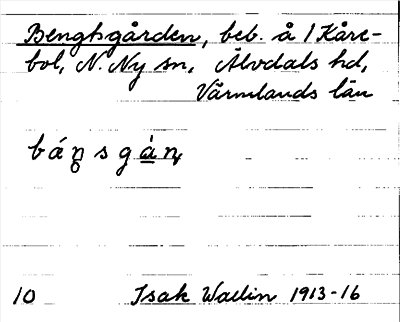 Bengtsgården, beb. å 1 Kåre-
bol, N. Ny sn, Älvdals hd,
Värmlands län
10 Isak Wallin 1913-16